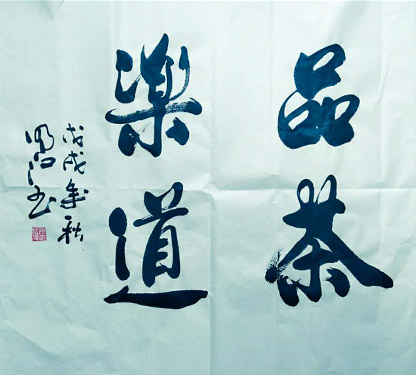 品茶
樂道
戊戌年秋